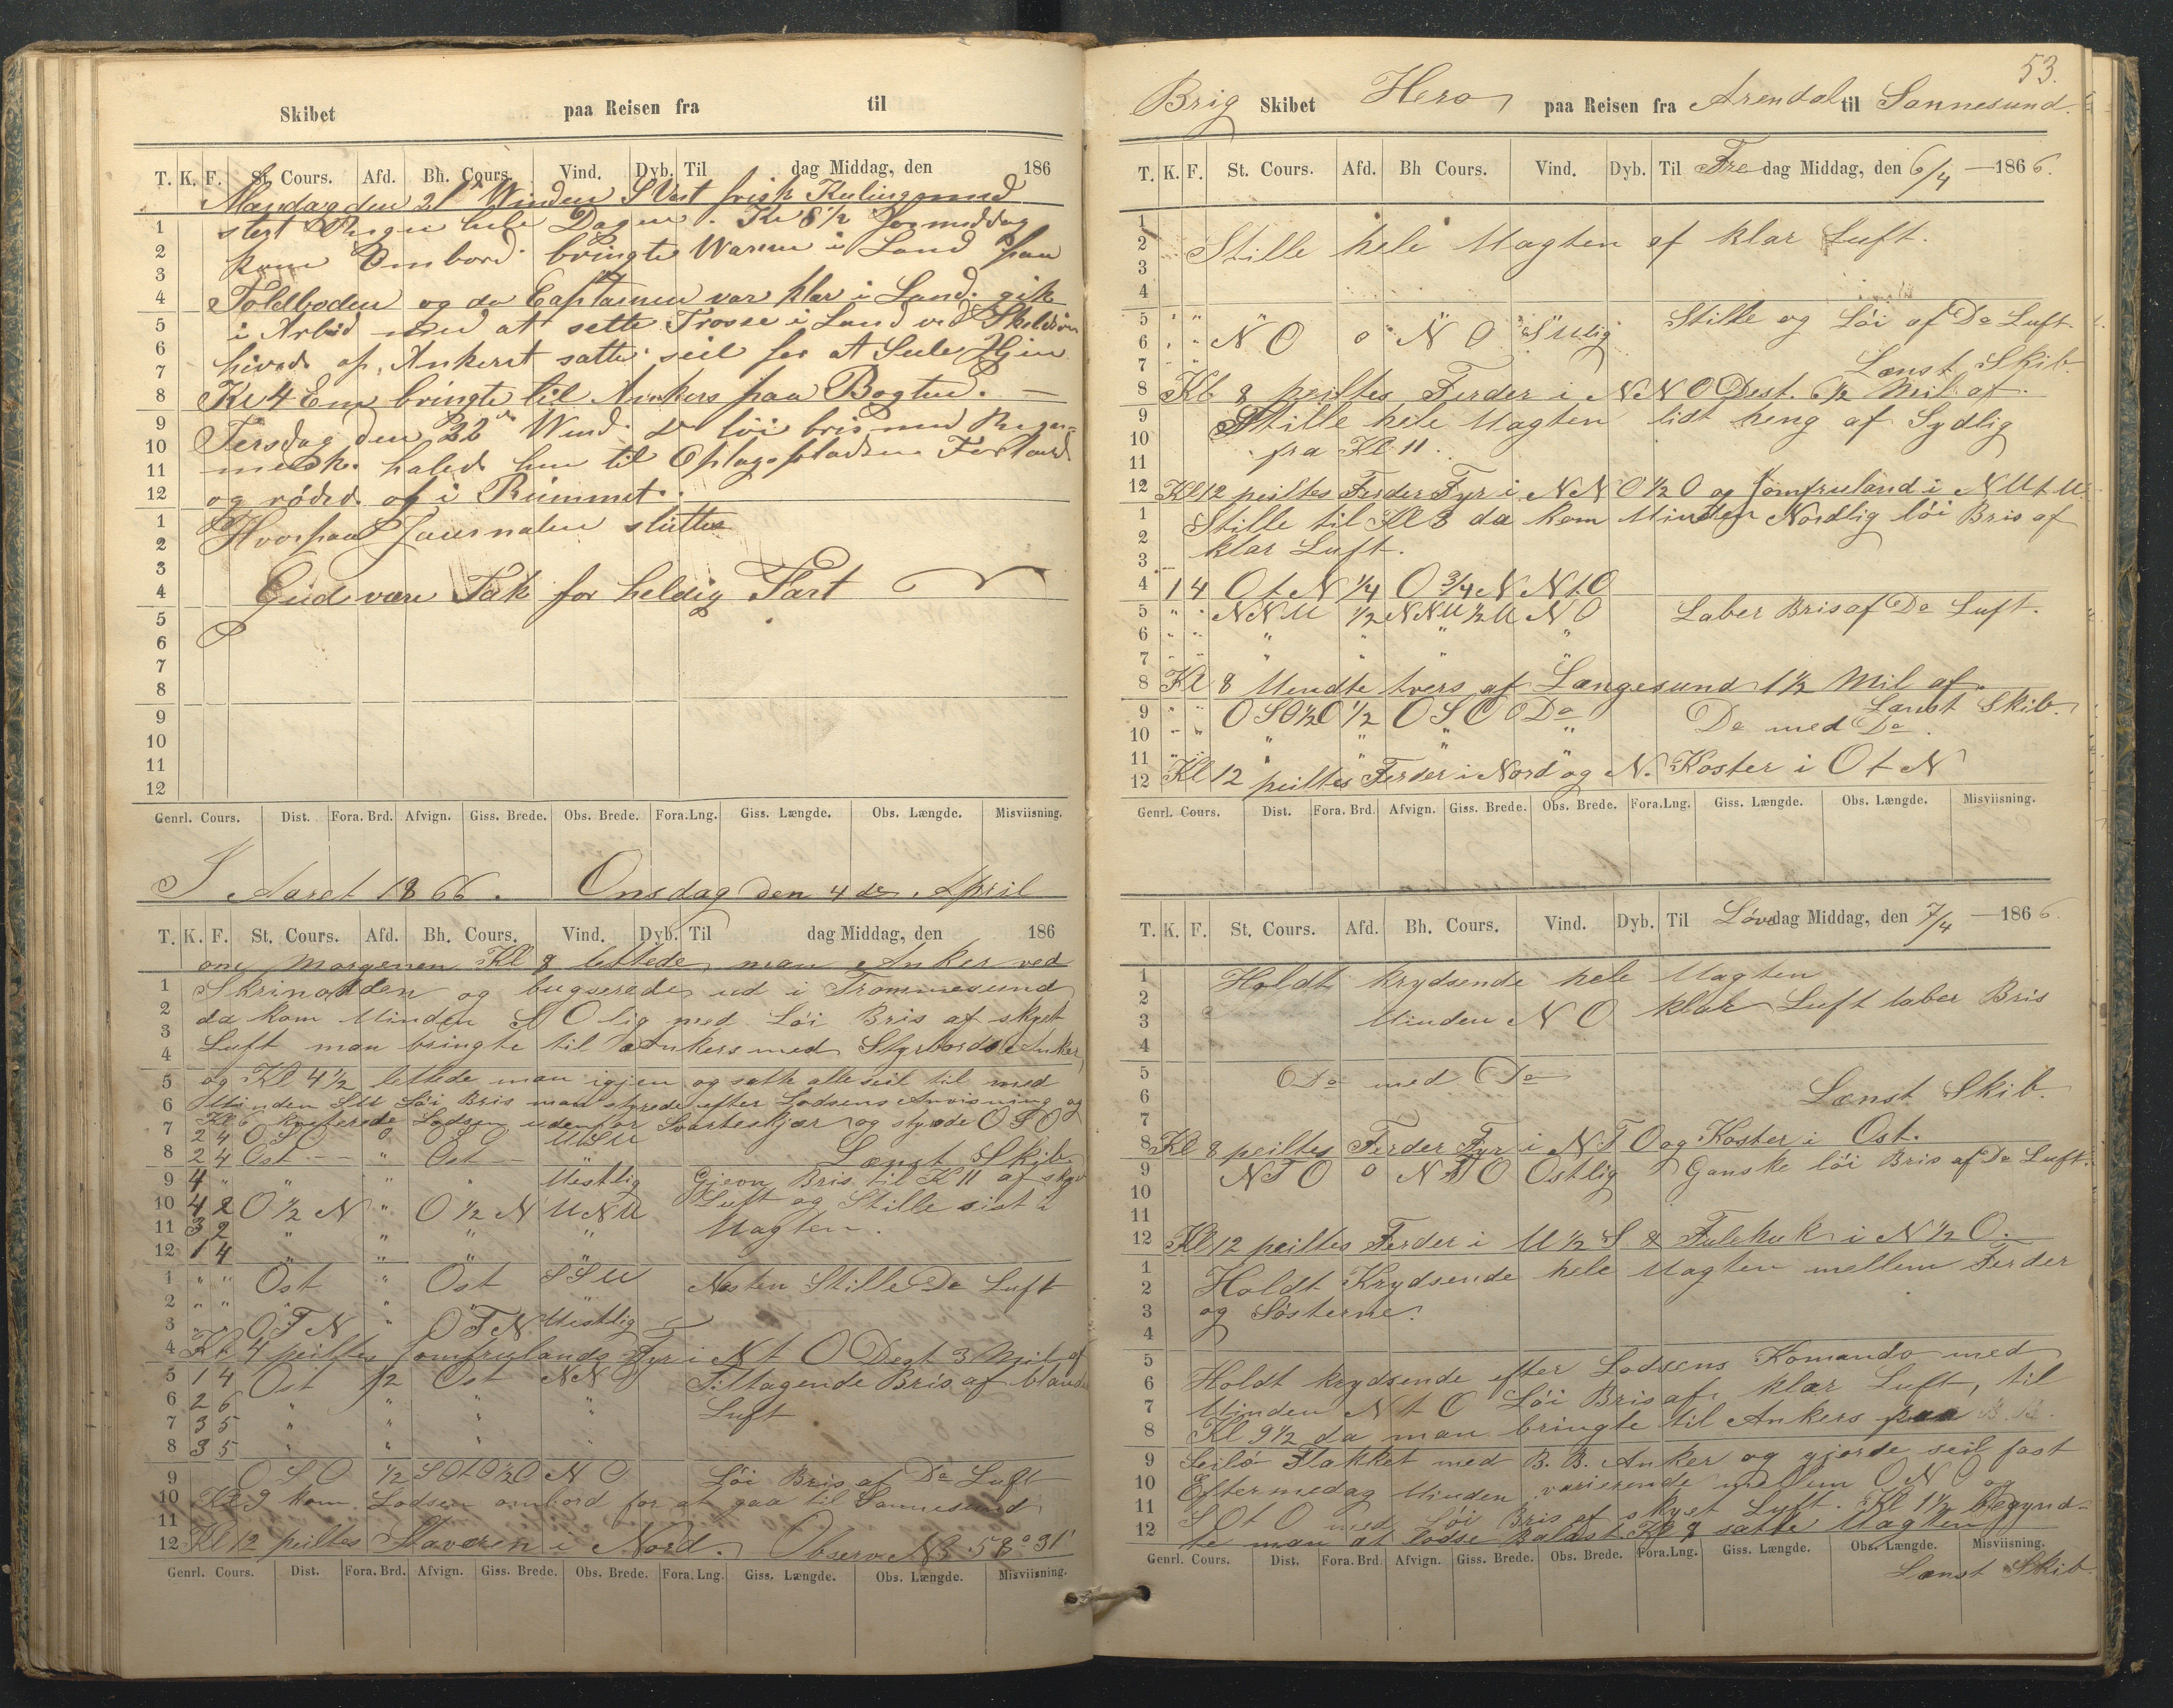 Skibet paa Reisen fra til
T. K. F. St. Cours. Afd. Bh. Cours. Vind. Dyb. Til dag Middag, den 186
Mandag den 21 Winden S Vest frisk Kuling med
1 stert Regn hele Dagen. Kl 8 1/2 formiddag
2 kom Ombord bringte Waren i Land paa
3
4 Toldboden og da Captainen var klar i Land gik
5 i Arbeid med at sette Trosse i Land ved
6 hivede op Ankeret satte seil for at Seile Hjem
7
8 Kl 4 Em bringte til Ankers paa Bogten.
9 Tirsdag den 22 Wind löi bris med Regn
10 halede hen til Oplagspladsen
11
12 og rödde op i Rummet.
1 Hvorpaa Journalen sluttes
2
3
4 Gud være Tak for heldig Fart
5
6
7
8
9
10
11
12
Genrl. Cours. Dist. Fora. Brd. Afvign. Giss. Brede. Obs. Brede. Fora.Lng. Giss. Længde. Obs. Længde. Misviisning.
I Aaret 1866. Onsdag den 4de April
T. K. F. St. Cours. Afd. Bh. Cours. Vind. Dyb. Til dag Middag, den 186
om Morgenen Kl 8 lettede man Anker ved
1 og bugserede ud i Trommesund
2 da kom Vinden S O lig med Löi Bris af skyet
3
4 Luft man bringte til Ankers med Styrbords Anker
5 og Kl 4 1/2 lettede man igjen og satte alle seil til med
6 Vinden SV Löi Bris man styrede efter Lodsens Anvisning og
7 Kl 6 kviterede Lodsen udenfor Svarteskjær og styrede O S O
2 4 O S O 0 O S O VSV
8 2 4 Ost " Ost " Lænst Skib.
9 4 " " " " Vestlig Gjevn Bris til Kl 11 af skyet
10 4 2 O 1/2 N " O 1/2 N V N V Luft og Stille sist i
11 3 2 " " " " Vagten.
12 1 4 " " " "
1 " " Ost " Ost S S V Næsten Stille Do Luft
2 " " " " " "
3 " " O T N " O T N Vestlig
4 Kl 4 peiltes Jomfrulands Fyr i N t O Dest 3 Mil af
5 1 4 Ost 1/2 Ost N N O Tiltagende Bris af blandet
6 2 6 " " " " Luft
7 3 5 " " " "
8 3 5 " " " "
9 O S O 1/2 S O t O 1/2 O N O Löi Bris af Do Luft
10 Kl 9 kom Lodsen ombord for at gaa til Sannesund
11
12 Kl 12 peiltes Staværen i Nord. Observ NB 58° 31'
Genrl. Cours. Dist. Fora. Brd. Afvign. Giss. Brede. Obs. Brede. Fora.Lng. Giss. Længde. Obs. Længde. Misviisning.
53.
Brig Skibet Hero paa Reisen fra Arendal til Sannesund.
T. K. F. St. Cours. Afd. Bh Cours. Vind. Dyb. Til Fre dag Middag, den 6/4 — 1866.
1
2 Stille hele Vagten af klar Luft.
3
4
5 " " " " " " Stille og Löi af Do Luft.
6 " " N O 0 N O S Vlig
7 " " Lænst Skib.
8 Kl 8 peiltes Ferder i N N O Dest. 6 1/2 Mil af.
9 Stille hele Vagten lidt heng af Sydlig
10 fra Kl 11.
11
12 Kl 12 peiltes Ferder Fyr i N N O 1/2 O og Jomfruland i N V t V
1 Stille til Kl 3 da kom Vinden Nordlig löi Bris af
2 klar Luft.
3
4 1 4 O t N 1/4 O 3/4 N N t O
5 " " N N V 1/2 N N V 1/2 V N O Laber Bris af Do Luft.
6 " " " " " "
7 " " " " " "
8 Kl 8 Vendte tvers af Langesund 1 1/2 Mil af.
Lænst Skib.
9 " " O S O 1/2 O 1/2 O S O Do Do med Do
10 " " " " " "
11 " " " " " "
12 Kl 12 peiltes Ferder i Nord og N. Koster i O t N
Genrl. Cours. Dist. Fora. Brd. Afvign. Giss. Brede. Obs. Brede. Fora.Lng. Giss. Længde. Obs. Længde. Misviisning.
T. K. F. St. Cours. Afd. Bh. Cours. Vind. Dyb. Til Løver dag Middag, den 7/4 — 1866
1 Holdt krydsende hele Vagten
2
3 Vinden N O klar Luft laber Bris
4
5 Do med Do
6 Lænst Skib.
7
8 Kl 8 peiltes Ferder Fyr i N T O og Koster i Ost.
9 N T O 0 N T O Ostlig Ganske löi Bris af Do Luft.
10
11
12 Kl 12 peiltes Ferder i V 1/2 S & Fulehuk i N 1/2 O.
1 Holdt Krydsende hele Vagten mellem Ferder
2
3 og Sösterne.
4
5 Holdt krydsende efter Lodsens Komando med
6
7 Vinden N t O Löi Bris af klar Luft, til
8 Kl 9 1/2 da man bringte til Ankers paa
9 Seilö Flakket med B. B. Anker og gjorde seil fast
10 Eftermedag Vinden varierende mellem O N O og
11 S O t O med Löi Bris af skyet Luft. Kl 1 1/2 begynd-
12 te man at lodse Balast. Kl 8 satte Vagten
Genrl. Cours. Dist. Fora. Brd. Afvign. Giss. Brede. Obs. Brede. Fora.Lng. Giss. Længde. Obs. Længde. Misviisning.
Lænst Skib.